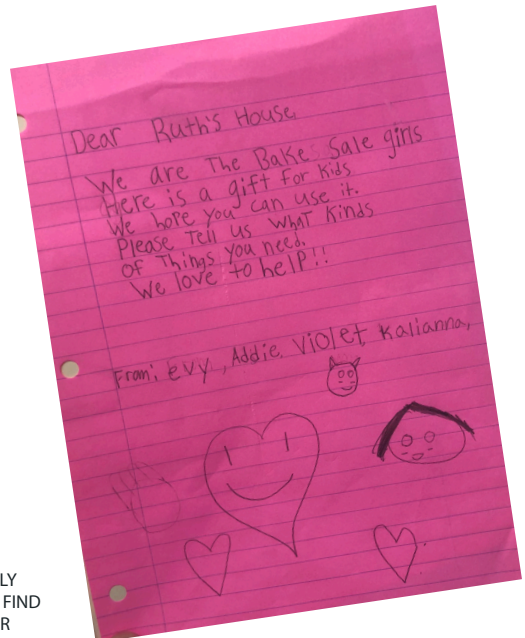 Dear Ruth's House.
We are The Bake Sale girls
Here is a gift for kids
We hope you can use it.
Please Tell us what kinds
of Things you need.
We love to help!!
From: evy, Addie, Violet, Kalianna,
LY
FIND
R